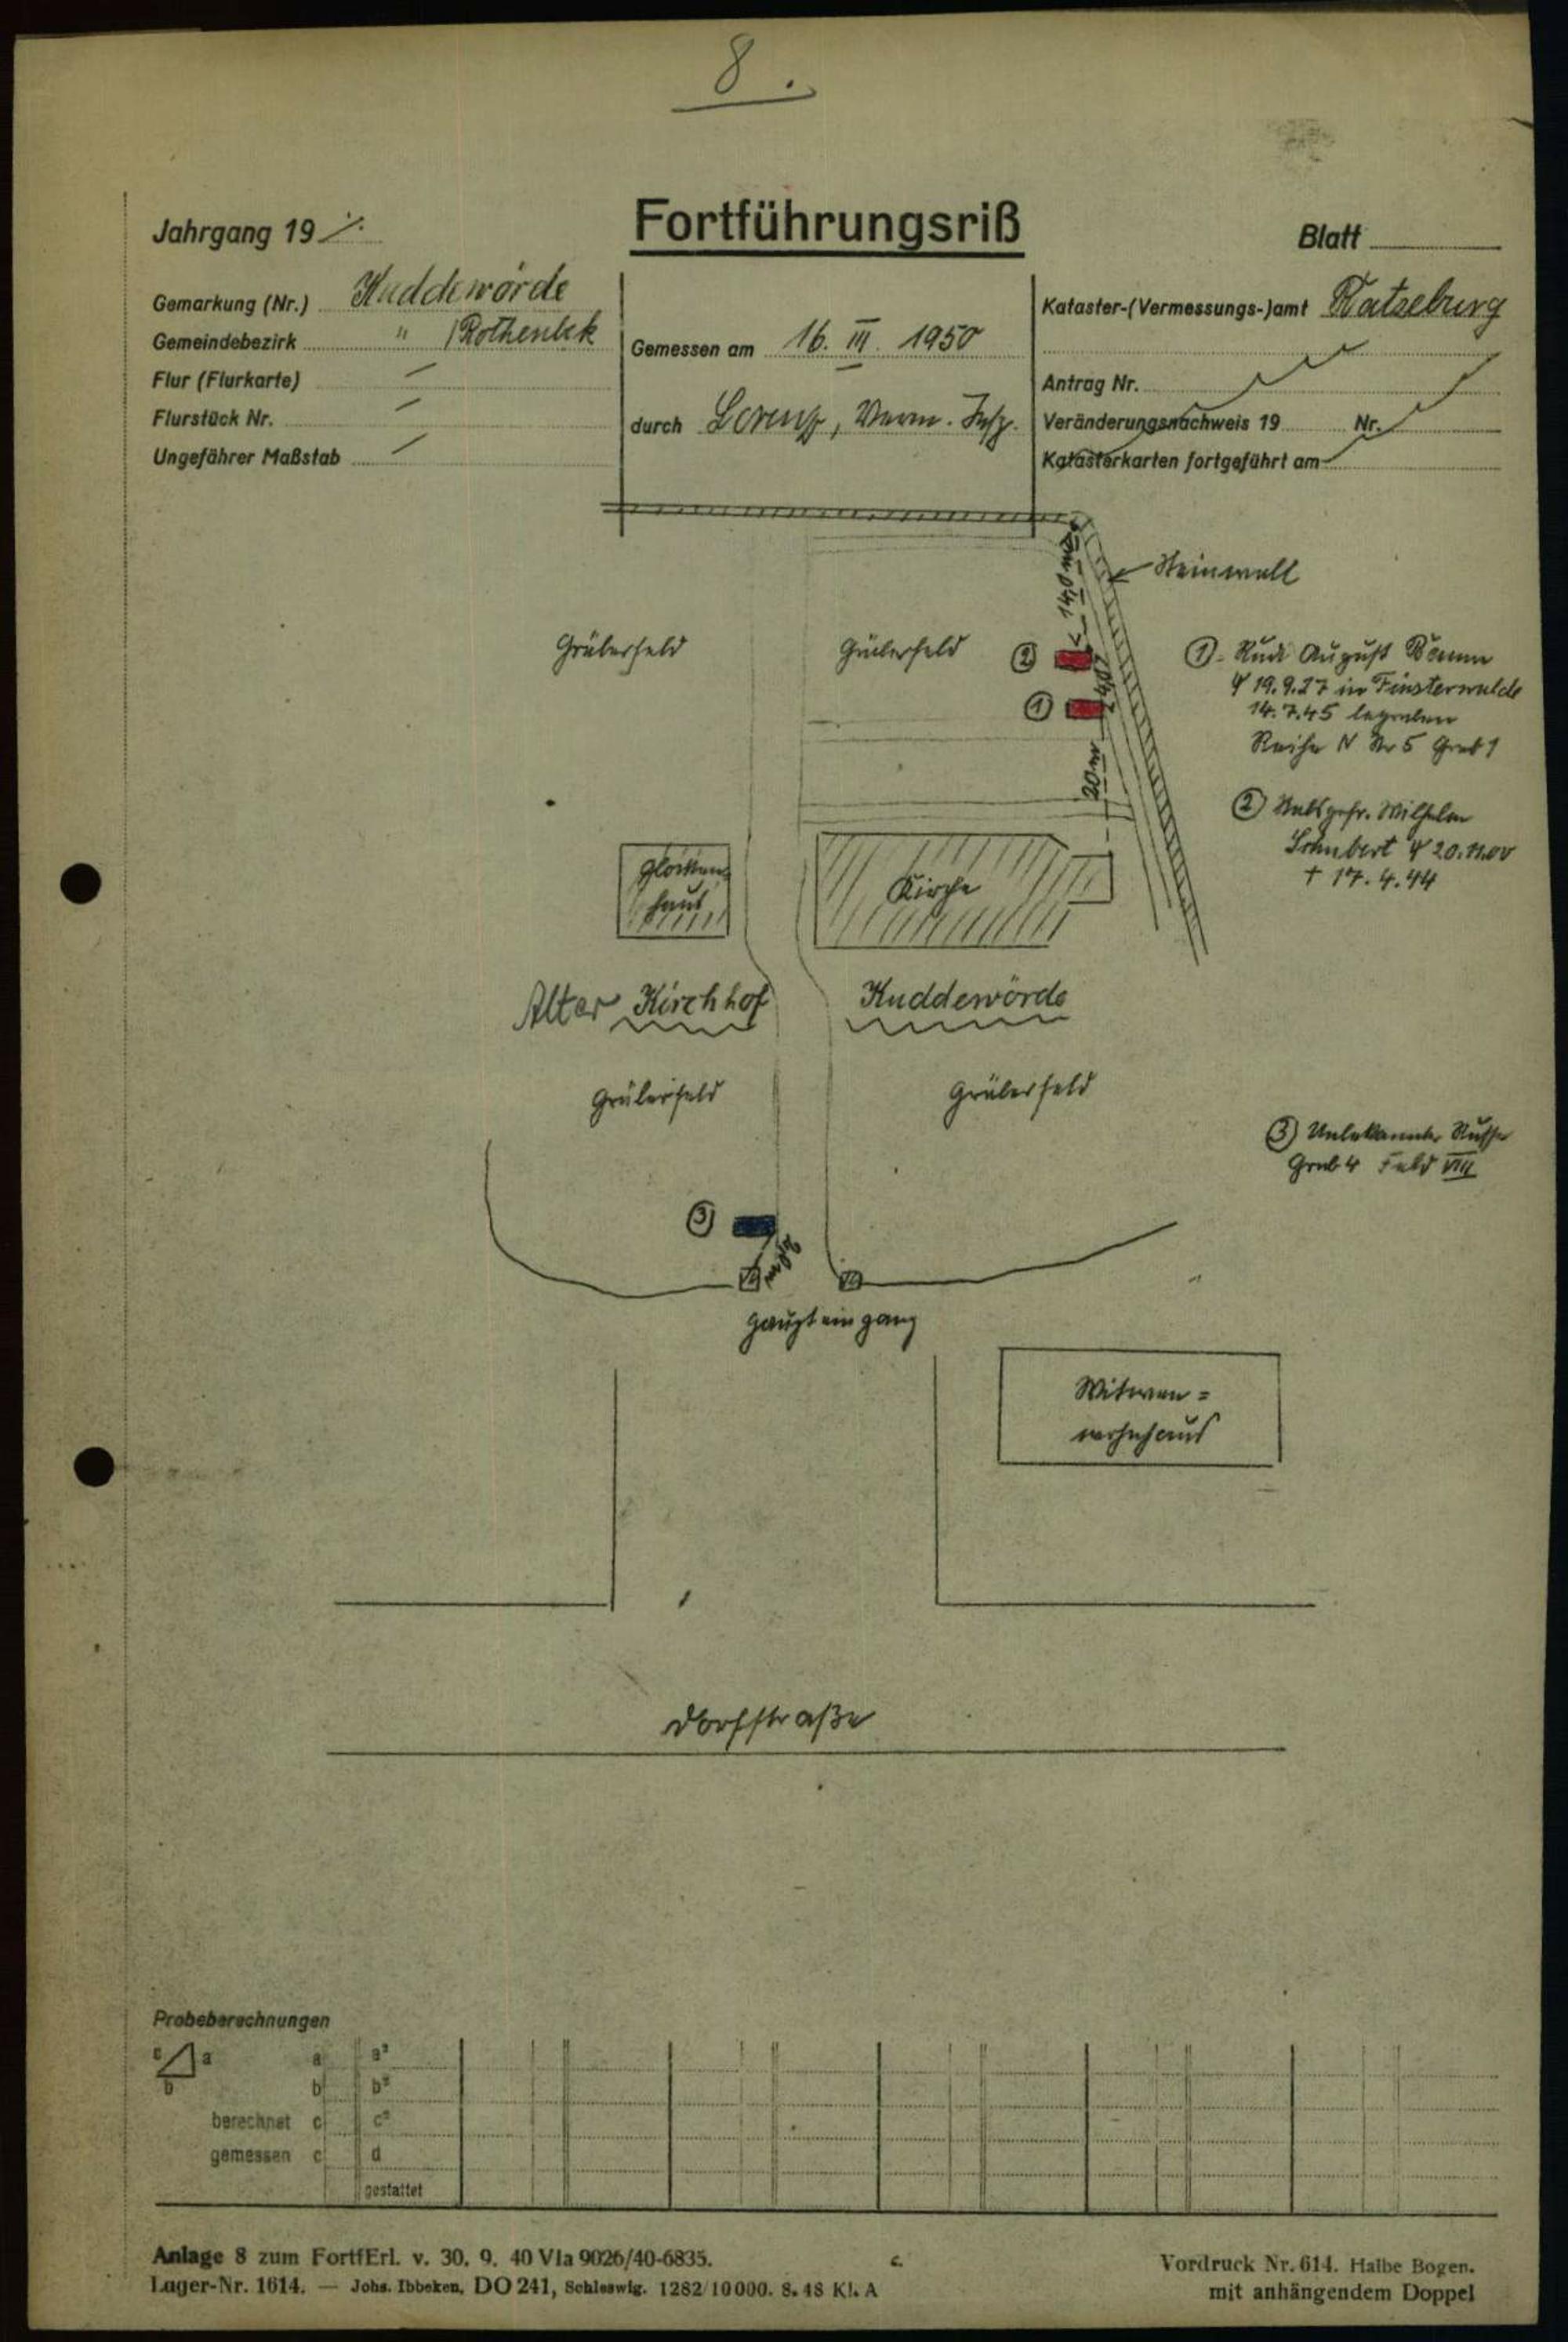 8.
Fortführungsriß
Jahrgang 19 ·/.
Blatt
Gemarkung (Nr.) Kuddewörde
Gemeindebezirk " /Rothenbek
Flur (Flurkarte) /
Flurstück Nr. /
Ungefährer Maßstab /
Gemessen am 16. III. 1950
durch Lorenz, Verm. Insp.
Kataster-(Vermessungs-)amt Ratzeburg
Antrag Nr.
Veränderungsnachweis 19 Nr.
Katasterkarten fortgeführt am
Steinwall
14,0 m
Gräberfeld
Gräberfeld
②
①
20 m
① Rudi August
* 19.9.27 in Finsterwalde
14.7.45 begraben
Reihe N Nr 5 Grab 1
② Stabsgefr. Wilhelm
Schubert * 20.11.00
+ 17.4.44
Glocken-
haus
Kirche
Alter Kirchhof Kuddewörde
Gräberfeld
Gräberfeld
③ Unbekannter Russe
Grab 4 Feld VIII
③
Haupteingang
Witwen=
wohnhaus
Dorfstraße
Probeberechnungen
c a a a²
b b b²
berechnet c c²
gemessen c d
gestattet
Anlage 8 zum FortfErl. v. 30. 9. 40 VIa 9026/40-6835.
Lager-Nr. 1614. — Johs. Ibbeken, DO 241, Schleswig. 1282/10000. 8. 48 Kl. A
c.
Vordruck Nr. 614. Halbe Bogen.
mit anhängendem Doppel